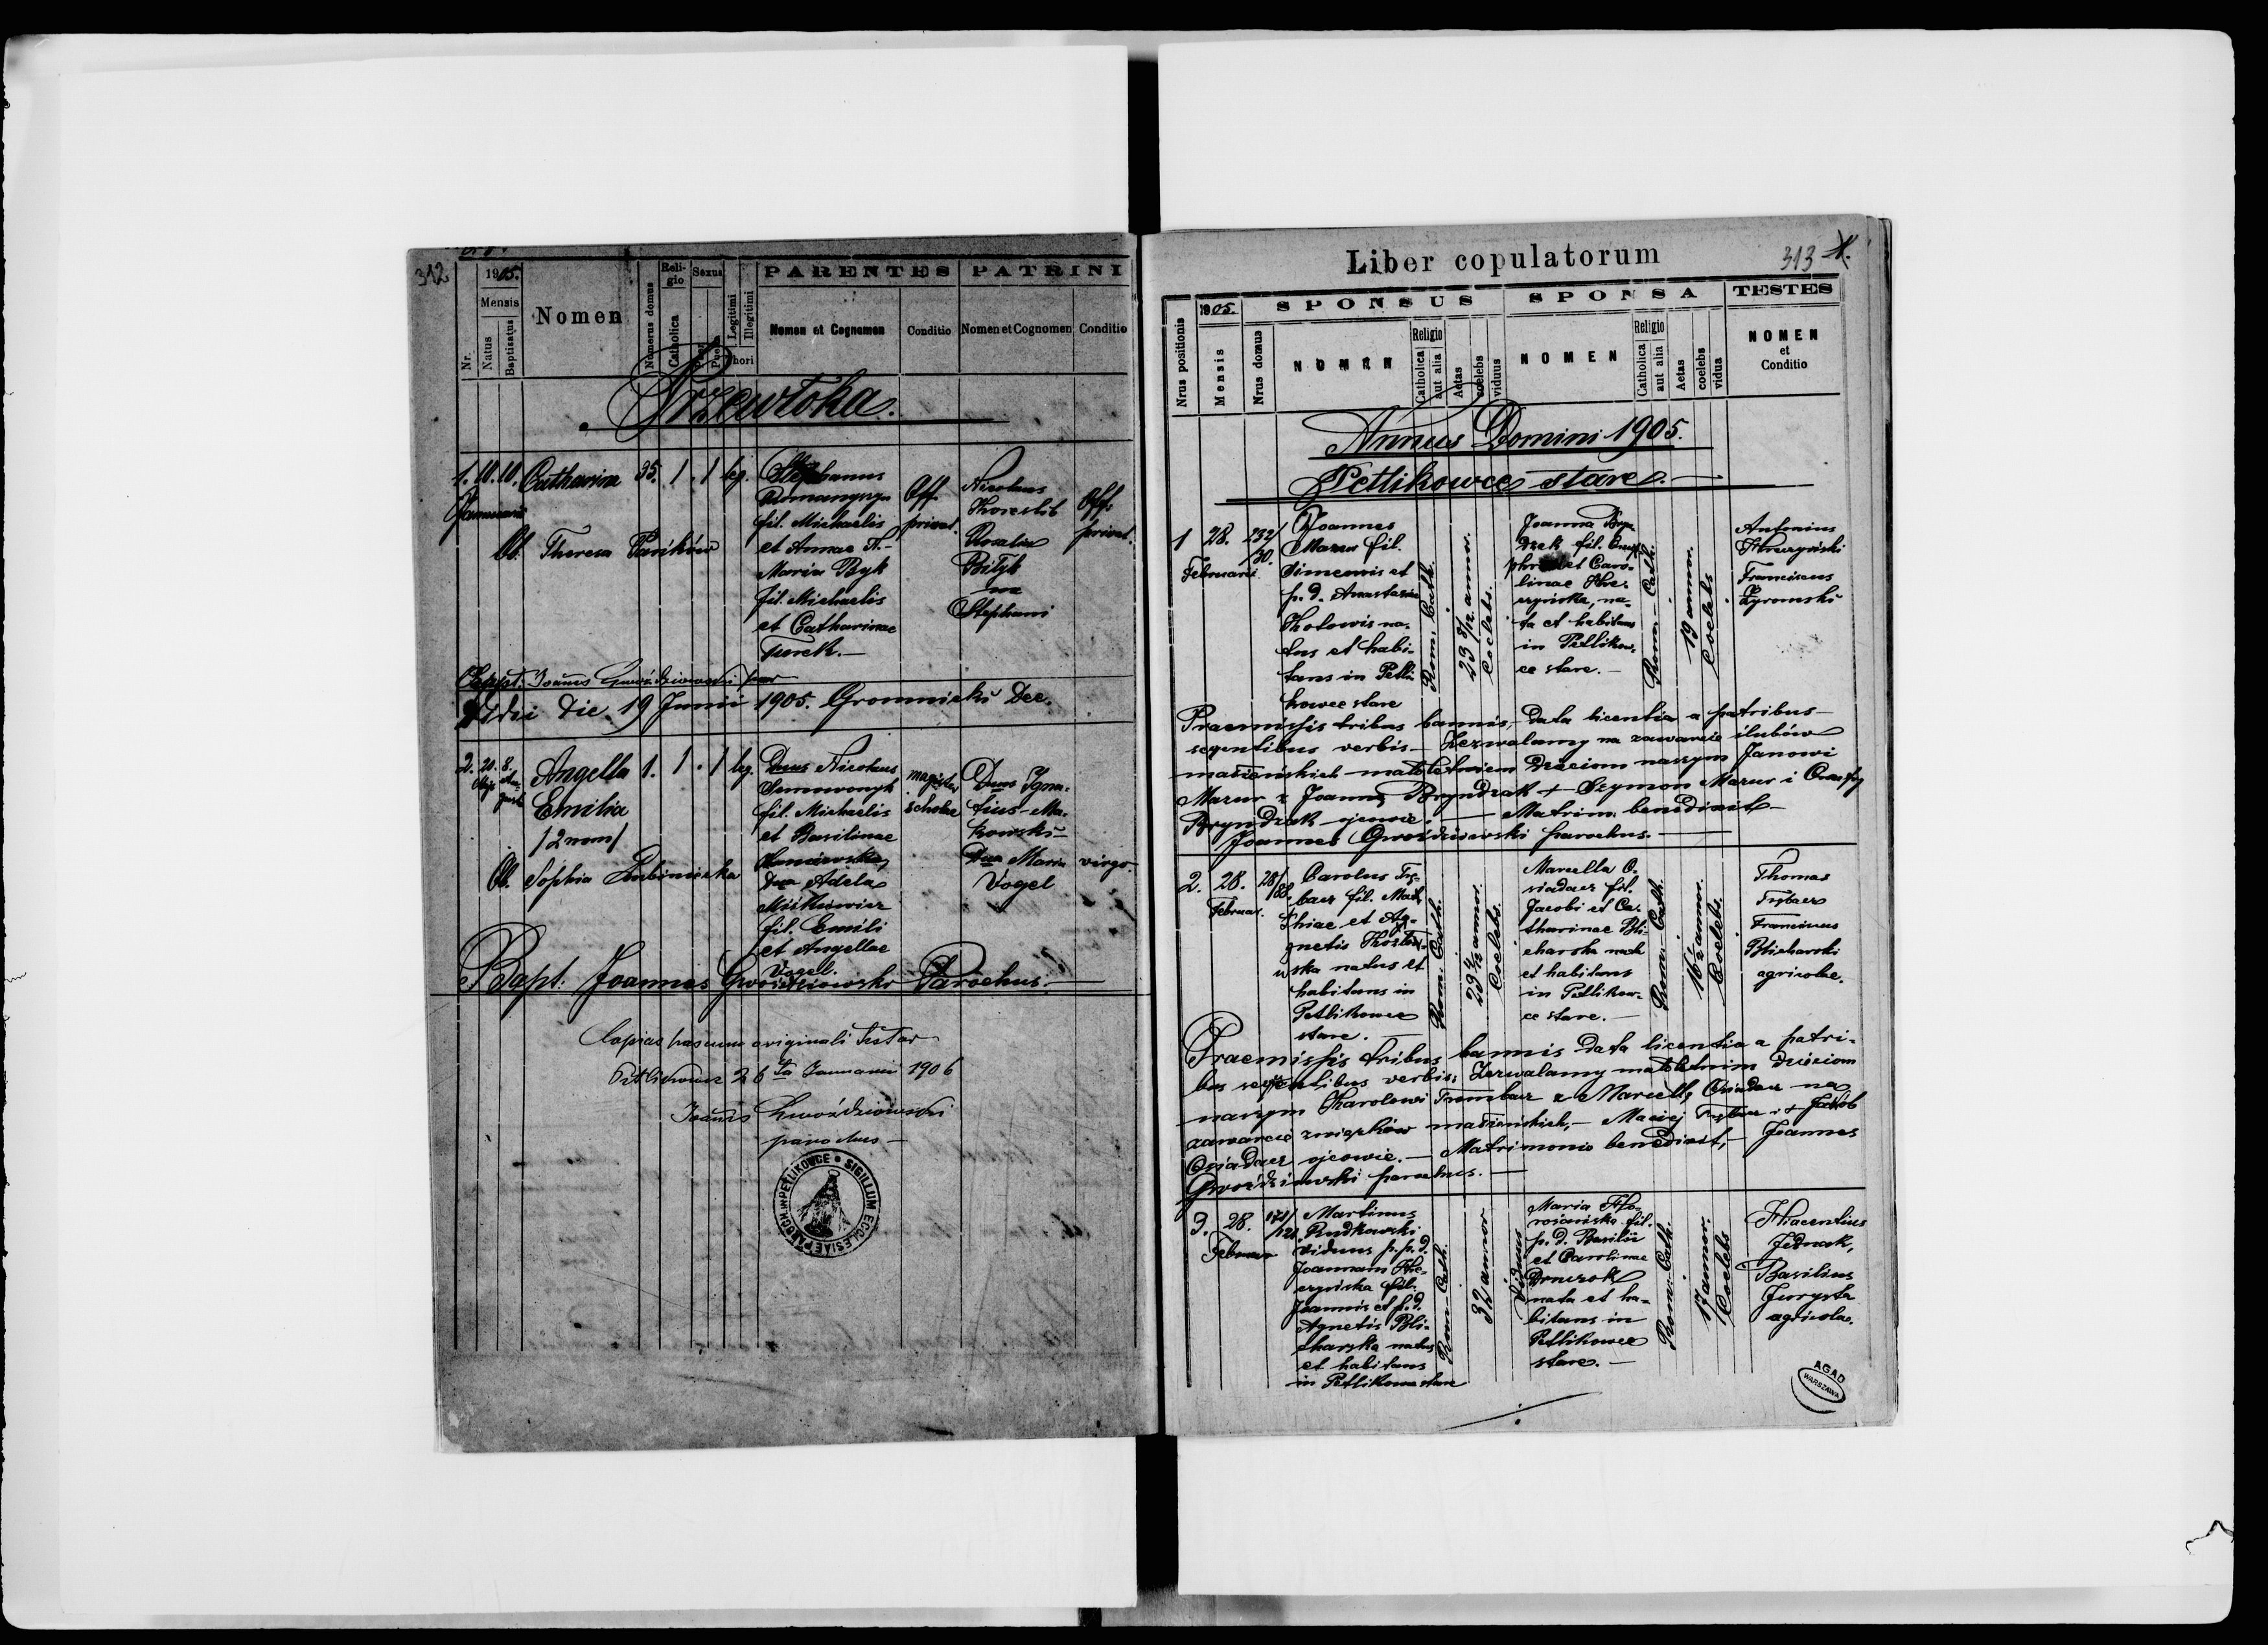 312
1905.
Mensis
Nr.
Natus
Baptisatus
Nomen
Numerus domus
Religio
Catholica
Sexus
Puer
Puella
Legitimi
Illegitimi
Thori
PARENTES
Nomen et Cognomen
Conditio
PATRINI
Nomen et Cognomen
Conditio
Przewłoka.
1. 10. 10. Catharina 35. 1 . 1 leg.
Januarii
Ob. Theresa
Stephanus
fil. Michaelis
et Annae
Maria Byk
fil. Michaelis
et Catharinae
Turek.—
Off.
privat.
Nicolaus
Rosalia
Bilyk
Stephani
Off.
privat.
Bapt. Joannes Gwoździowski par
Vidi die 19 Junii 1905. Gromnicki Dec.
2. 20. 8. Angella 1. 1 . 1 leg.
Emilia
/2 nom/
Ob. Sophia
Dnus Nicolaus
fil. Michaelis
et Basilinae
Dna Adela
Miśkiewicz
fil. Emili
et Angellae
Vogel.
magister
scholae
Dnus Igna-
tius Ma-
kowski
Dna Maria
Vogel
virgo.
Bapt. Joannes Gwoździowski Parochus.
Copias has cum originali
26 Januarii 1906
Joannes Gwoździowski
parochus
SIGILLUM ECCLESIAE PAROCH. IN PETLIKOWCE
Liber copulatorum
313
Nrus positionis
1905.
Mensis
Nrus domus
SPONSUS
NOMEN
Religio
Catholica
aut alia
Aetas
coelebs
viduus
SPONSA
NOMEN
Religio
Catholica
aut alia
Aetas
coelebs
vidua
TESTES
NOMEN
et
Conditio
Annus Domini 1905.
Petlikowce stare.
1 28.
Februarii
232/
30.
Joannes
Mazur fil.
Simeonis et
p. d. Anastasiae
na-
tus et habi-
tans in Petli-
kowce stare
Rom. Cath.
23 8/12 annor.
Coelebs.
Joanna Bryn-
dzak fil. Onu-
phrii et Caro-
linae
na-
ta et habitans
in Petlikow-
ce stare.—
Rom. Cath.
19 annor.
Coelebs
Antonius
Franciscus
Zyromski
Praemissis tribus bannis, data licentia a patribus
sequentibus verbis— Zezwalamy na zawarcie ślubów
małżeńskich małoletniem dzieciom naszym Janowi
Mazur z Joanną Bryndzak + Szymon Mazur i Onufry
Bryndzak ojcowie.— Matrim. benedixit—
Joannes Gwoździowski parochus.—
2. 28.
Februar.
28/
88.
Carolus Try-
bacz fil. Mat-
thiae et Ag-
netis
natus et
habitans in
Petlikowce
stare.
Rom. Cath.
Coelebs.
Marcella O-
siadacz fil.
Jacobi et Ca-
tharinae Bli-
charska nata
et habitans
in Petlikow-
ce stare.—
Rom. Cath.
16 1/2 annor.
Coelebs.
Thomas
Trybacz
Franciscus
Blicharski
agricolae.
Praemissis tribus bannis data licentia a patri-
bus sequentibus verbis: Zezwalamy małoletnim dzieciom
naszym Karolowi z Marcellą Osiadacz na
zawarcie związków małżeńskich,— Maciej Trybacz i + Jakób
Osiadacz ojcowie.— Matrimonio benedixit,— Joannes
Gwoździowski parochus.—
3. 28.
Februar
121
Martinus
Rudkowski
viduus p. p. d.
Joannam
fil.
Joannis et p. d.
Agnetis Bli-
charska natus
et habitans
in Petlikowce stare
Rom. Cath.
32 annor
Viduus
Maria
fil.
p. d. Basilii
et Carolinae
nata et ha-
bitans in
Petlikowce
stare.—
Rom. Cath.
17 annor.
Coelebs
Hiacentius
Jednak,
Basilius
agricolae.
AGAD
WARSZAWA